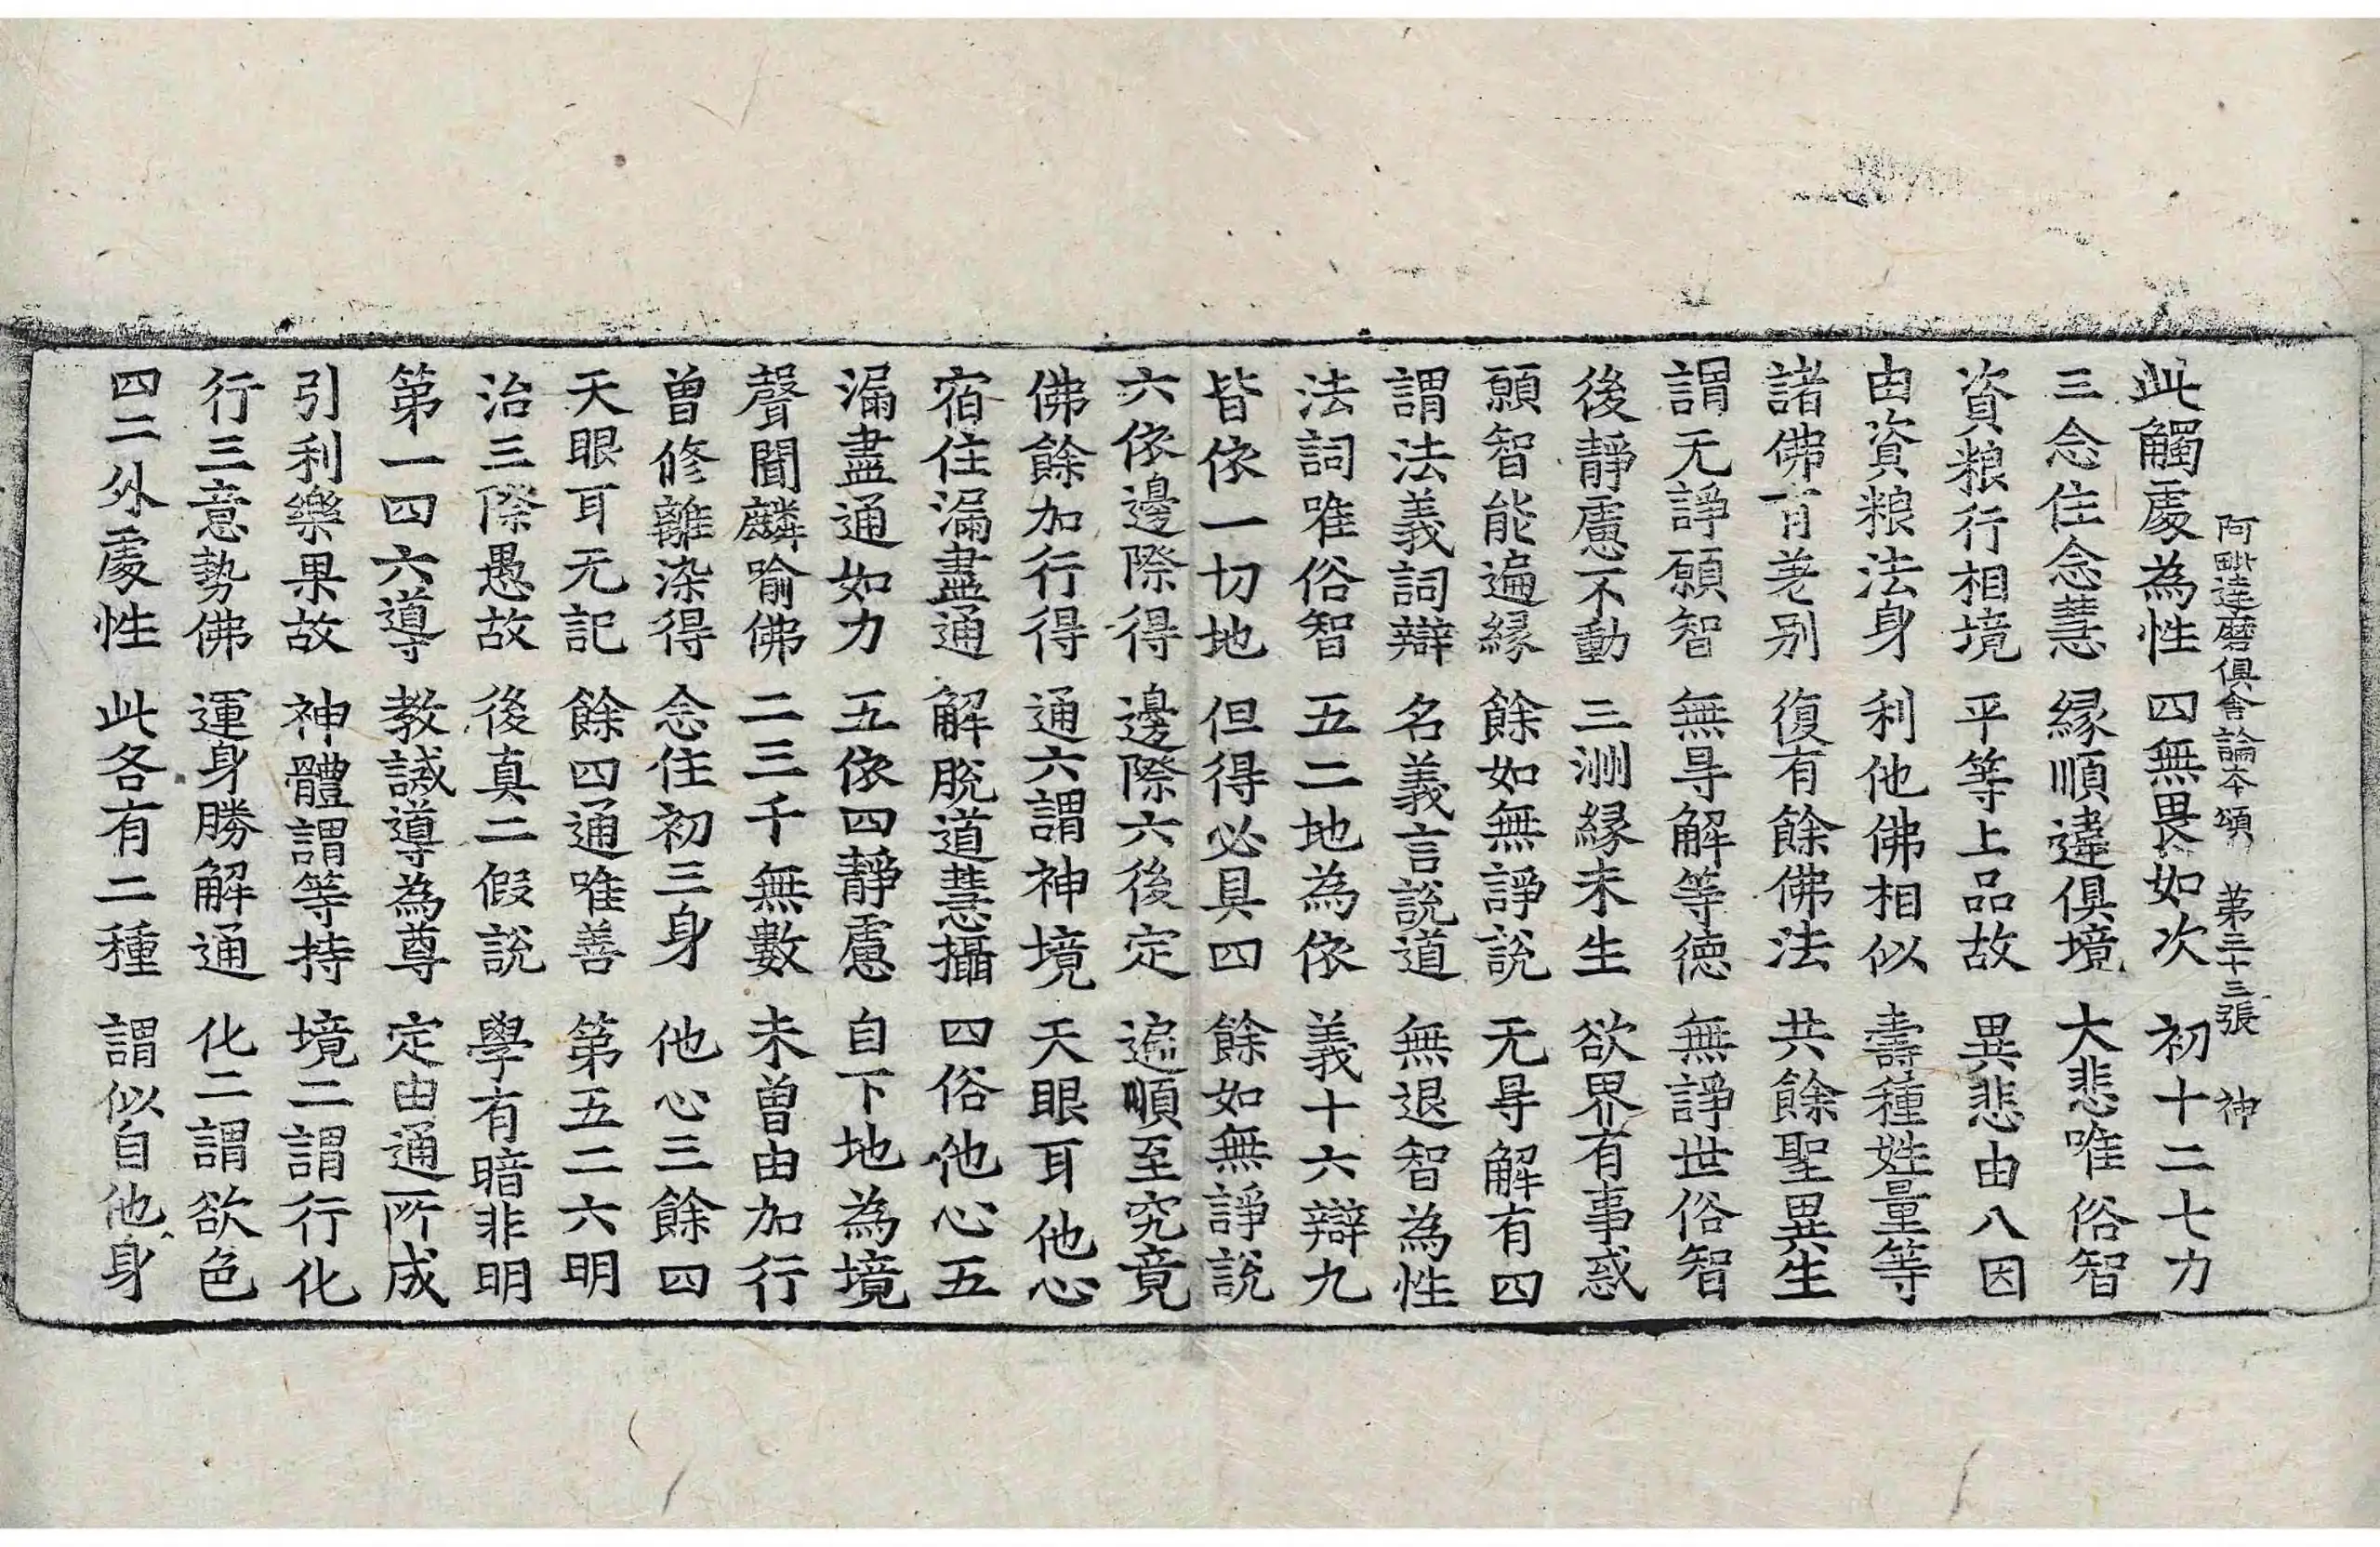 阿毗達磨俱舍論本頌 第三十三張 神
此觸處為性 四無畏如次 初十二七力
三念住念慧 緣順違俱境 大悲唯俗智
資粮行相境 平等上品故 異悲由八因
由資粮法身 利他佛相似 壽種姓量等
諸佛有差别 復有餘佛法 共餘聖異生
謂无諍願智 無㝵解等德 無諍世俗智
後靜慮不動 三洲緣未生 欲界有事惑
願智能遍緣 餘如無諍說 无㝵解有四
謂法義詞辯 名義言說道 無退智為性
法詞唯俗智 五二地為依 義十六辯九
皆依一切地 但得必具四 餘如無諍說
六依邊際得 邊際六後定 遍順至究竟
佛餘加行得 通六謂神境 天眼耳他心
宿住漏盡通 解脫道慧攝 四俗他心五
漏盡通如力 五依四靜慮 自下地為境
聲聞麟喻佛 二三千無數 未曾由加行
曾修離染得 念住初三身 他心三餘四
天眼耳无記 餘四通唯善 第五二六明
治三際愚故 後真二假說 學有暗非明
第一四六導 教誡導為尊 定由通所成
引利樂果故 神體謂等持 境二謂行化
行三意勢佛 運身勝解通 化二謂欲色
四二外處性 此各有二種 謂似自他身